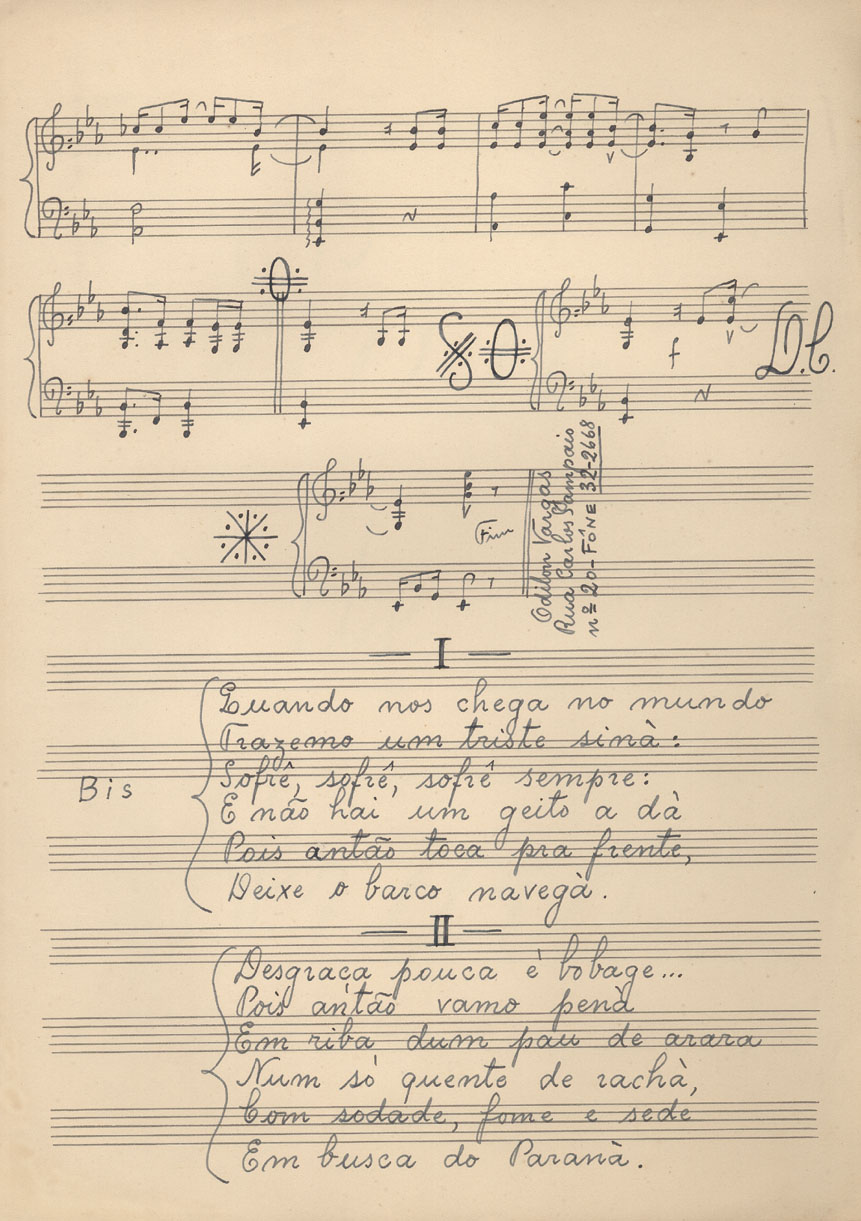 f
D.C.
Fim
Odilon Vargas
Rua Carlos Sampaio
nº 20 - FÔNE 32-2668
— I —
Quando nos chega no mundo
Trazemo um triste sinà:
Bis
Sofrê, sofrê, sofrê sempre:
E não hai um geito a dà
Pois antão toca pra frente,
Deixe o barco navegà.
— II —
Desgraça pouca è bobage...
Pois antão vamo penà
Em riba dum pau de arara
Num sò quente de rachà,
Com sodade, fome e sede
Em busca do Paranà.